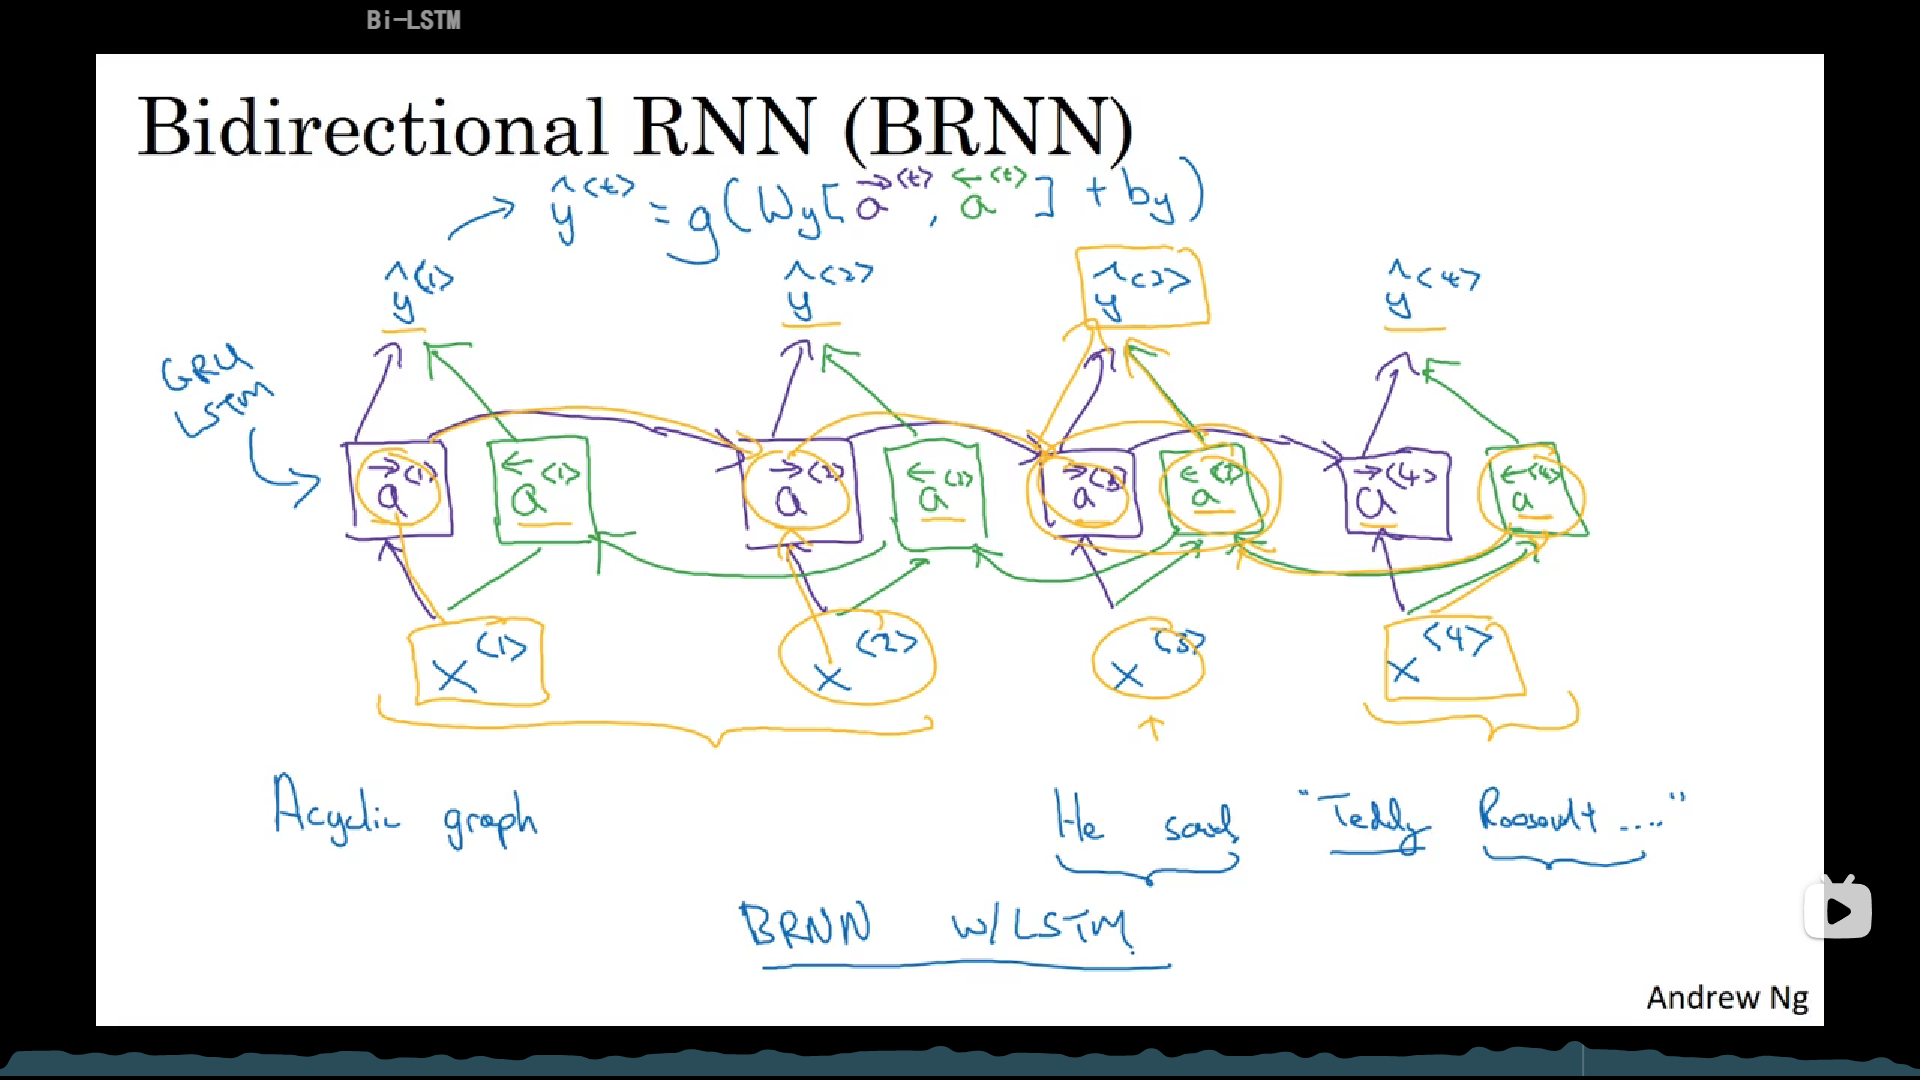 Bi-LSTM
Bidirectional RNN (BRNN)
ŷ<t> = g(Wy[a→<t>, a←<t>] + by)
ŷ<1> ŷ<2> ŷ<3> ŷ<4>
GRU
LSTM
a→<1> a←<1> a→<2> a←<2> a→<3> a←<3> a→<4> a←<4>
x<1> x<2> x<3> x<4>
Acyclic graph
He said "Teddy Roosevelt ...."
BRNN w/LSTM
Andrew Ng